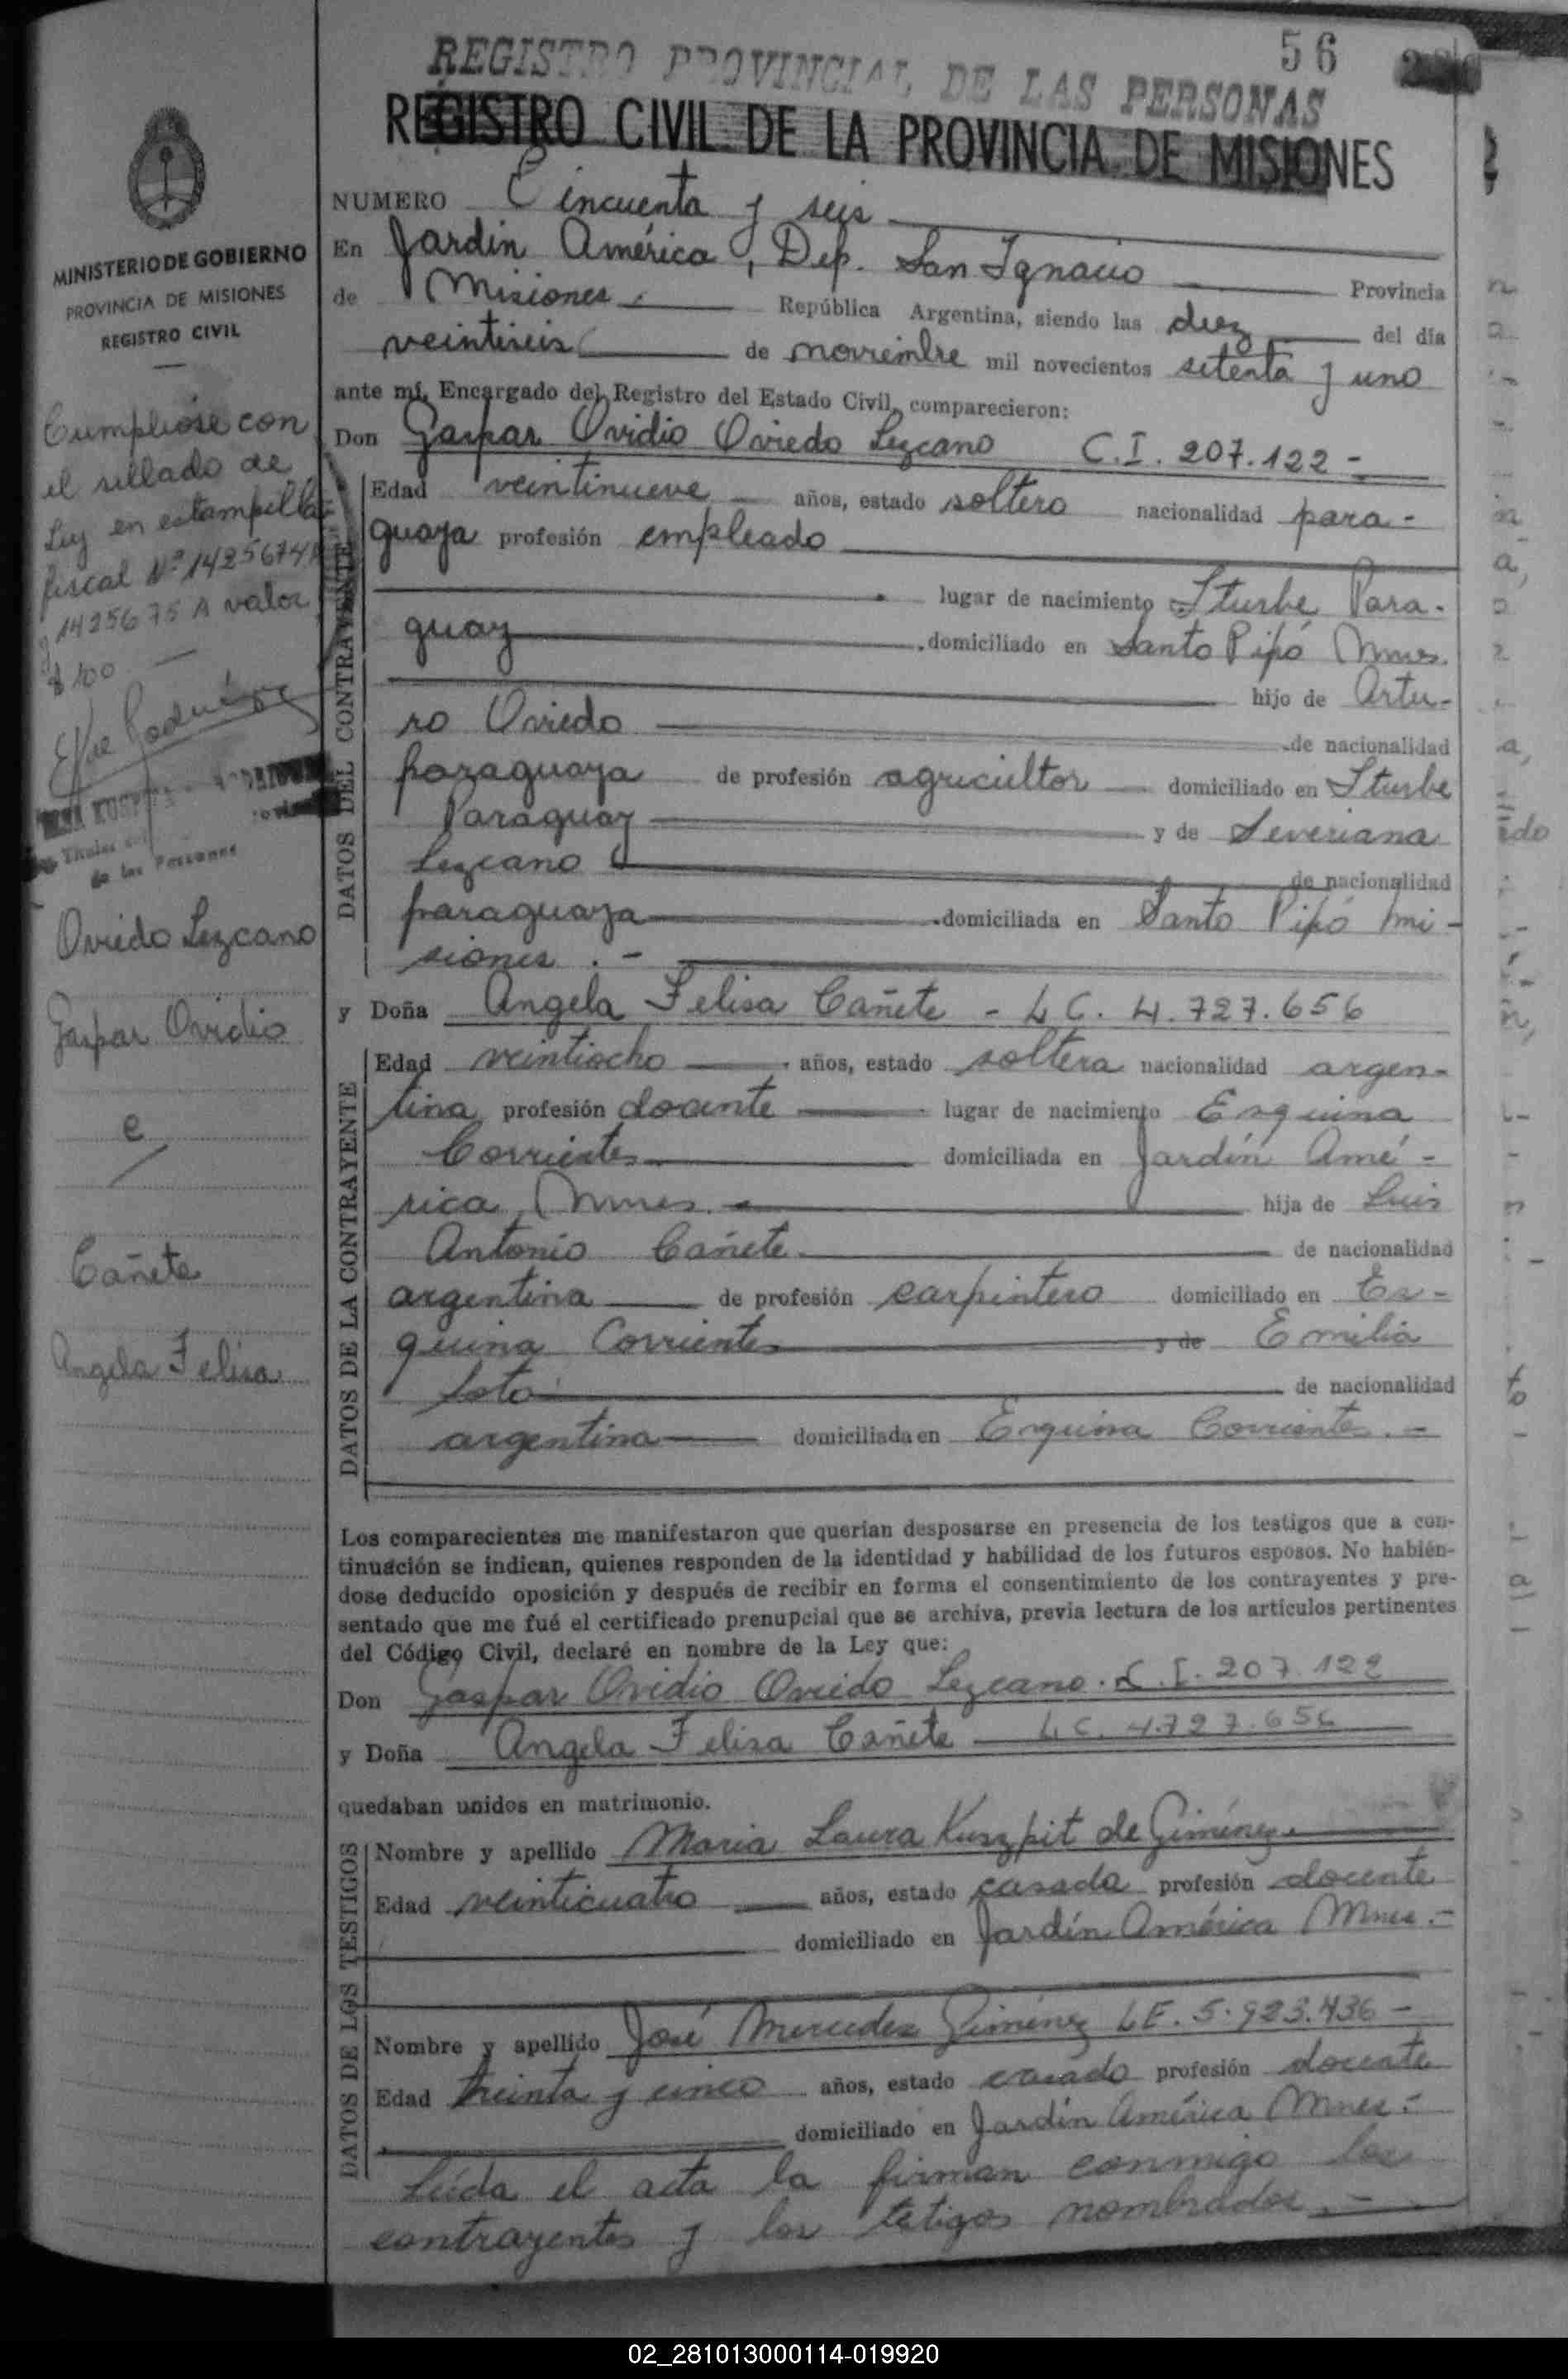 56
REGISTRO PROVINCIAL DE LAS PERSONAS
REGISTRO CIVIL DE LA PROVINCIA DE MISIONES
MINISTERIO DE GOBIERNO
PROVINCIA DE MISIONES
REGISTRO CIVIL
Cumplióse con
el sellado de
Ley en estampilla
fiscal Nº 1425674A
y 1425675 A valor
$ 100
de las Personas
Oviedo Lezcano
Gaspar Ovidio
e
Cañete
Angela Felisa
NUMERO Cincuenta y seis
En Jardin América, Dep. San Ignacio Provincia
de Misiones República Argentina, siendo las diez del día
veintiseis de noviembre mil novecientos setenta y uno
ante mí, Encargado del Registro del Estado Civil, comparecieron:
Don Gaspar Ovidio Oviedo Lezcano C.I. 207.122 -
DATOS DEL CONTRAYENTE
Edad veintinueve años, estado soltero nacionalidad para-
guaya profesión empleado
lugar de nacimiento Iturbe Para-
guay domiciliado en Santo Pipó Mnes.
hijo de Artu-
ro Oviedo de nacionalidad
paraguaya de profesión agricultor domiciliado en Iturbe
Paraguay y de Severiana
Lezcano de nacionalidad
paraguaya domiciliada en Santo Pipó Mi-
siones . -
y Doña Angela Felisa Cañete - L C. 4.727.656
DATOS DE LA CONTRAYENTE
Edad veintiocho años, estado soltera nacionalidad argen-
tina profesión docente lugar de nacimiento Esquina
Corrientes domiciliada en Jardín Amé-
rica, Mnes. hija de Luis
Antonio Cañete de nacionalidad
argentina de profesión carpintero domiciliado en Es-
quina Corrientes y de Emilia
Soto de nacionalidad
argentina domiciliada en Esquina Corrientes. -
Los comparecientes me manifestaron que querían desposarse en presencia de los testigos que a con-
tinuación se indican, quienes responden de la identidad y habilidad de los futuros esposos. No habién-
dose deducido oposición y después de recibir en forma el consentimiento de los contrayentes y pre-
sentado que me fué el certificado prenupcial que se archiva, previa lectura de los artículos pertinentes
del Código Civil, declaré en nombre de la Ley que:
Don Gaspar Ovidio Oviedo Lezcano. C.I. 207.122
y Doña Angela Felisa Cañete L C. 4.727.656
quedaban unidos en matrimonio.
DATOS DE LOS TESTIGOS
Nombre y apellido Maria Laura Kuszpit de Giménez.
Edad veinticuatro años, estado casada profesión docente
domiciliado en Jardín América Mnes. -
Nombre y apellido José Mercedes Giménez L E. 5.923.436 -
Edad treinta y cinco años, estado casado profesión docente
domiciliado en Jardín América Mnes. -
Leída el acta la firman conmigo los
contrayentes y los testigos nombrados. -
02_281013000114-019920